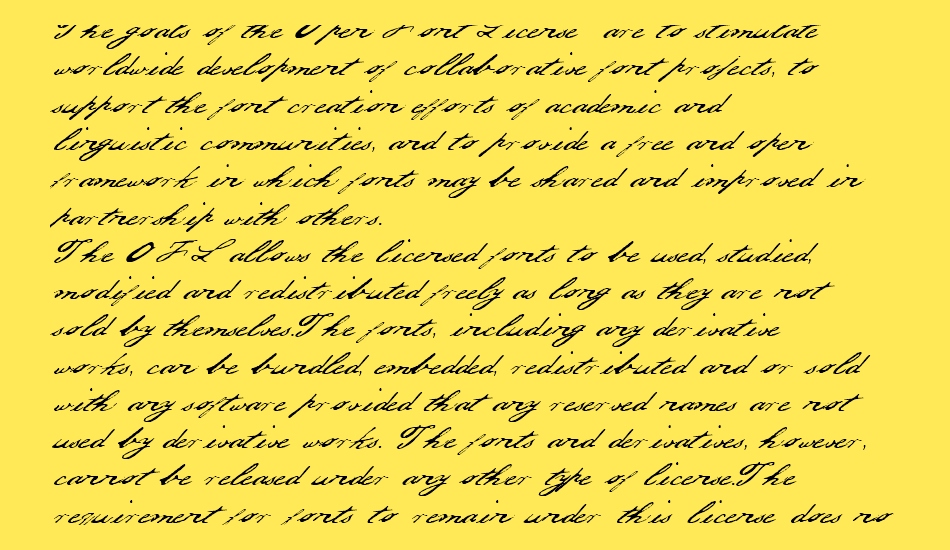 The goals of the Open Font License are to stimulate
worldwide development of collaborative font projects, to
support the font creation efforts of academic and
linguistic communities, and to provide a free and open
framework in which fonts may be shared and improved in
partnership with others.
The OFL allows the licensed fonts to be used, studied,
modified and redistributed freely as long as they are not
sold by themselves.The fonts, including any derivative
works, can be bundled, embedded, redistributed and or sold
with any software provided that any reserved names are not
used by derivative works. The fonts and derivatives, however,
cannot be released under any other type of license.The
requirement for fonts to remain under this license does no